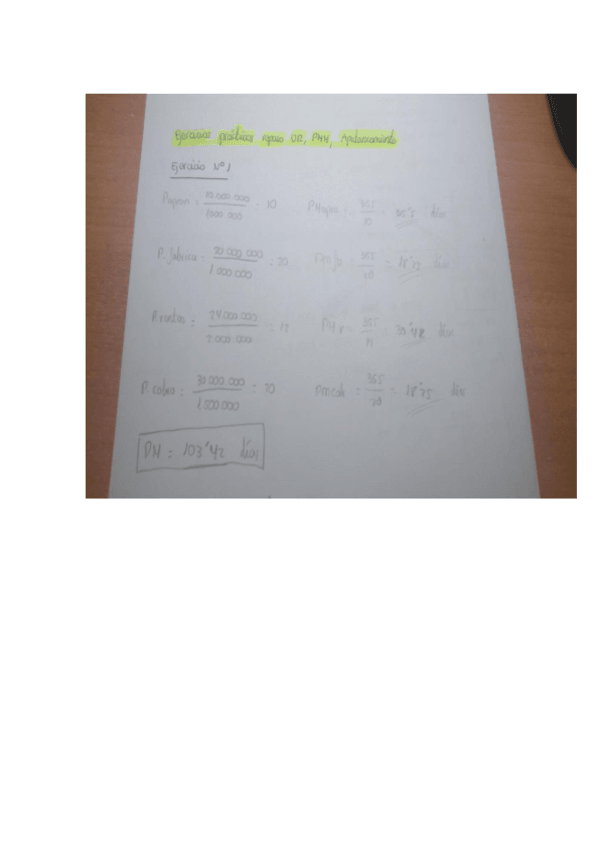 Ejercicios prácticos repaso OR, PMM, Apalancamiento
Ejercicio Nº1
Paprov : 10.000.000 / 1000.000 : 10 PMapro : 365 / 10 : 36'5 días
P. fabrica : 20 000 000 / 1 000.000 : 20 365 / 20 = 18'25 días
P. ventas : 24.000.000 / 2.000.000 : 12 PM v : 365 / 12 : 30'42 días
P. cobro : 30 000.000 / 1.500.000 : 20 PMcob : 365 / 20 = 18'25 días
PM : 103'42 días